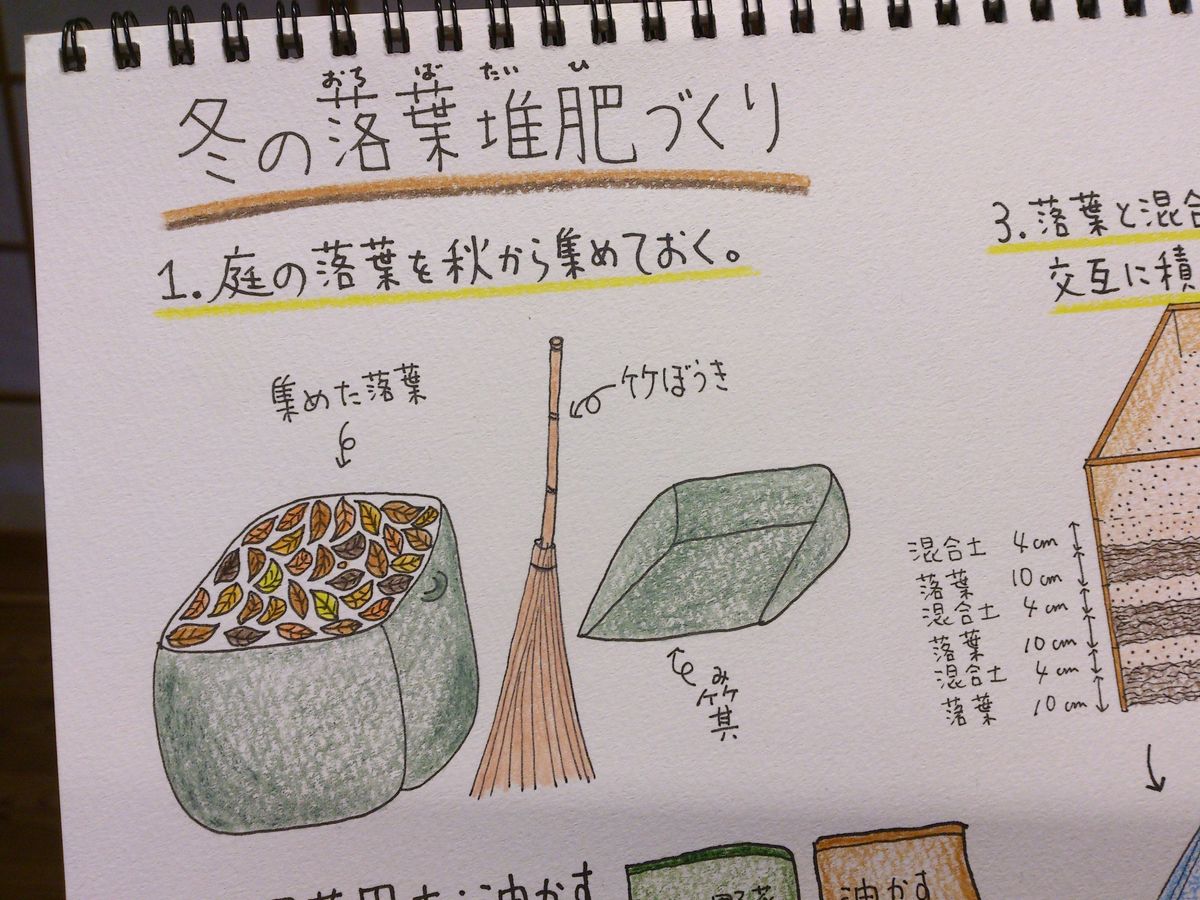 おちばたいひ
冬の落葉堆肥づくり
1. 庭の落葉を秋から集めておく。
集めた落葉
竹ぼうき
み
箕
3. 落葉と混合
交互に積
混合土 4cm
落葉 10cm
混合土 4cm
落葉 10cm
混合土 4cm
落葉 10cm
油かす
油かす